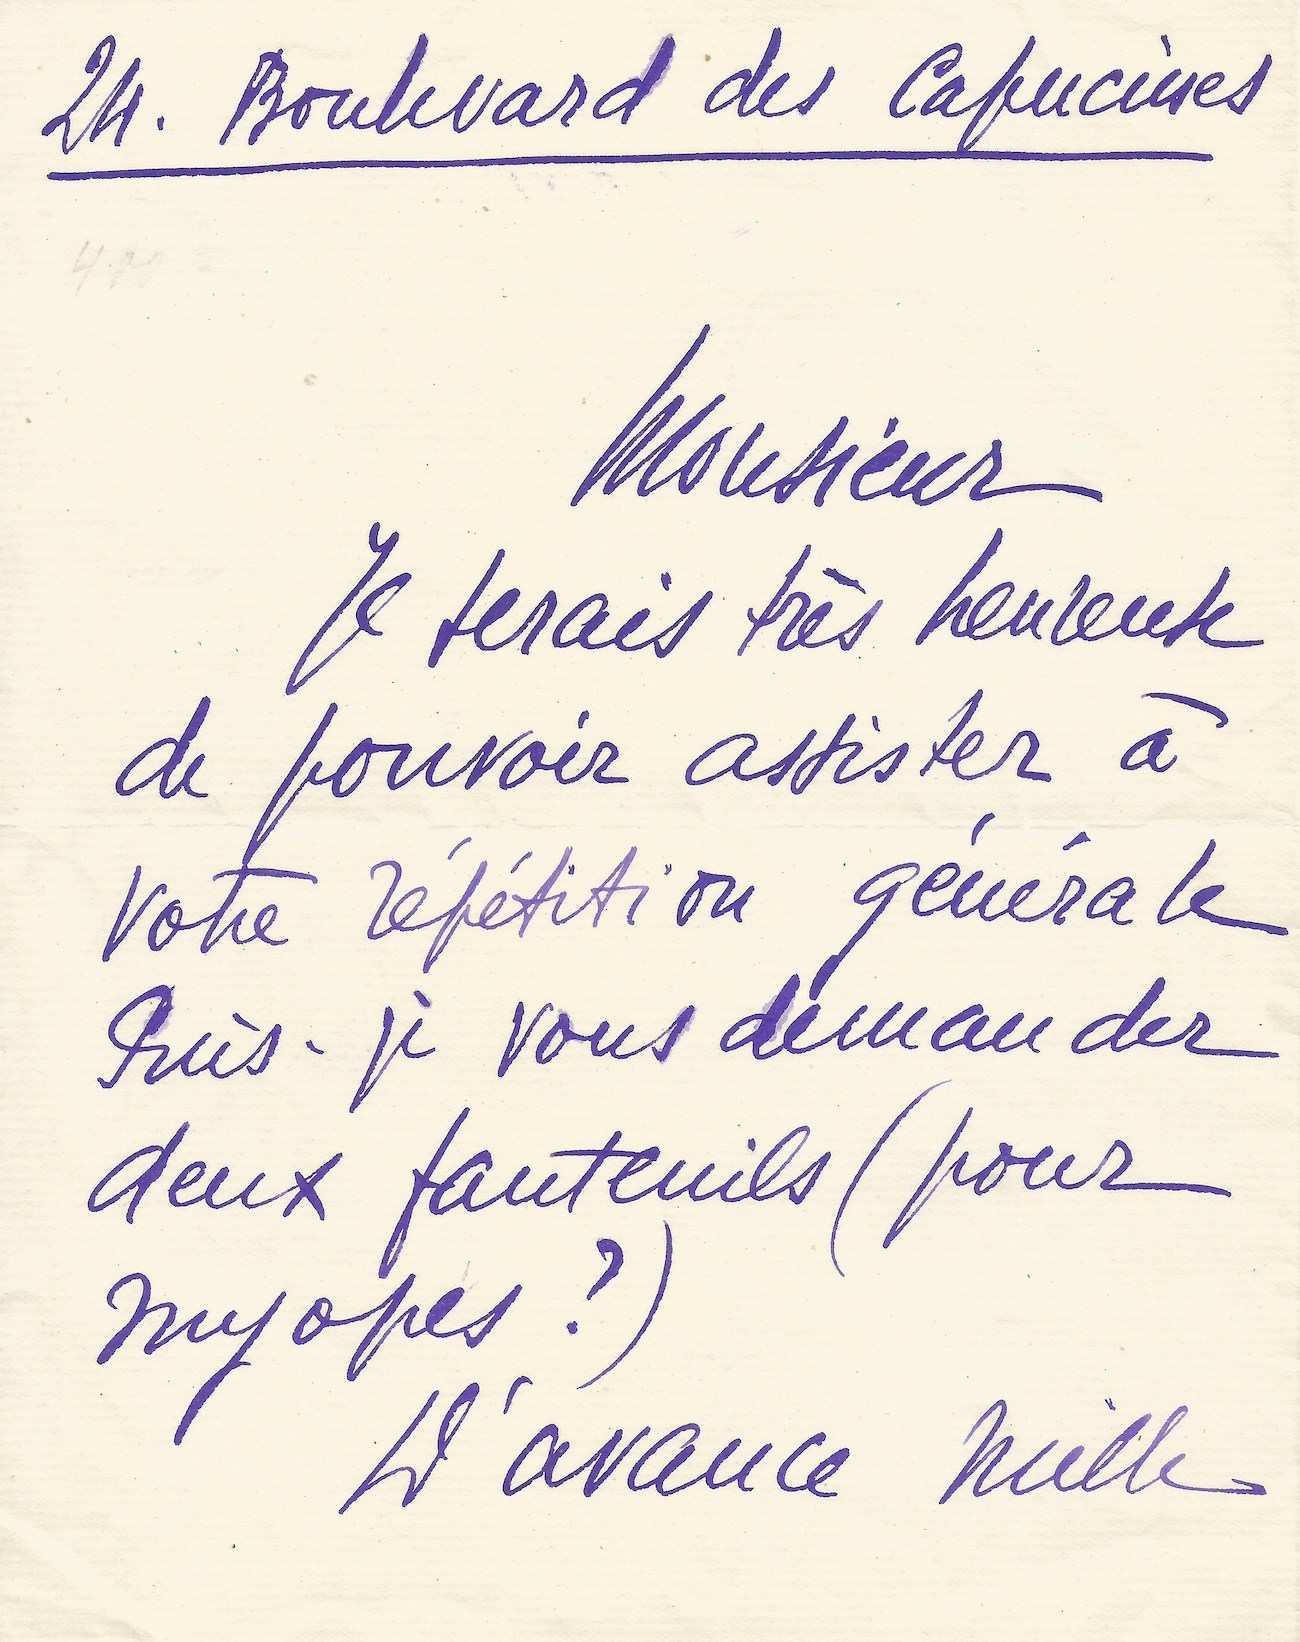 24. Boulevard des Capucines
Monsieur
Je serais très heureuse
de pouvoir assister à
votre répétition générale
Puis-je vous demander
deux fauteuils (pour
myopes ?)
D'avance mille